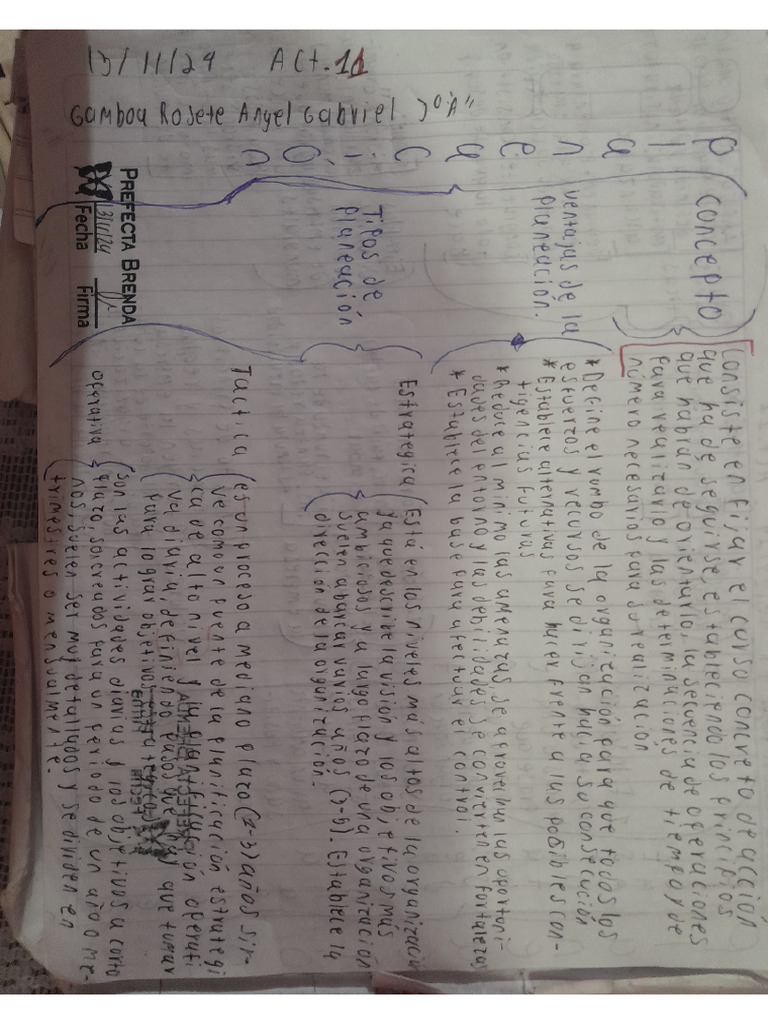 13/11/24 Act. 11
Gamboa Rosete Angel Gabriel 3º "A"
planeación
concepto
Consiste en fijar el curso concreto de acción
que ha de seguirse, estableciendo los principios
que habian de orientarlo, la secuencia de operaciones
para realizarlo y las determinaciones de tiempo y de
número necesarios para su realización
ventajas de la
planeación.
*Define el rumbo de la organización para que todos los
esfuerzos y recursos se dirijan hacia su consecución
*Establece alternativas para hacer frente a las posibles con-
tigencias futuras
*Reduce al minimo las amenazas, se aprovechan las oportuni-
dades del entorno y las debilidades se convierten en fortalezas
*Establece la base para afectuar el control.
Tipos de
planeación
Estrategica
Está en los niveles más altos de la organizació
ya que describe la visión y los objetivos más
ambiciosos y a largo plazo de una organización
suelen abarcar varios años (3-5). Establece la
dirección de la organización.
Tactica
es un proceso a mediano plazo (2-3) años sir-
ve como fuente de la planificación estrategi
ca de alto nivel y la planificación operati
va diaria, definiendo pasos que hay que tomar
para lograr objetivos
operativa
son las actividades diarias y los objetivos a corto
plazo, son creados para un periodo de un año o me-
nos, suelen ser muy detallados y se dividen en
trimestres o mensualmente.
PREFECTA BRENDA
13/11/24
Fecha Firma